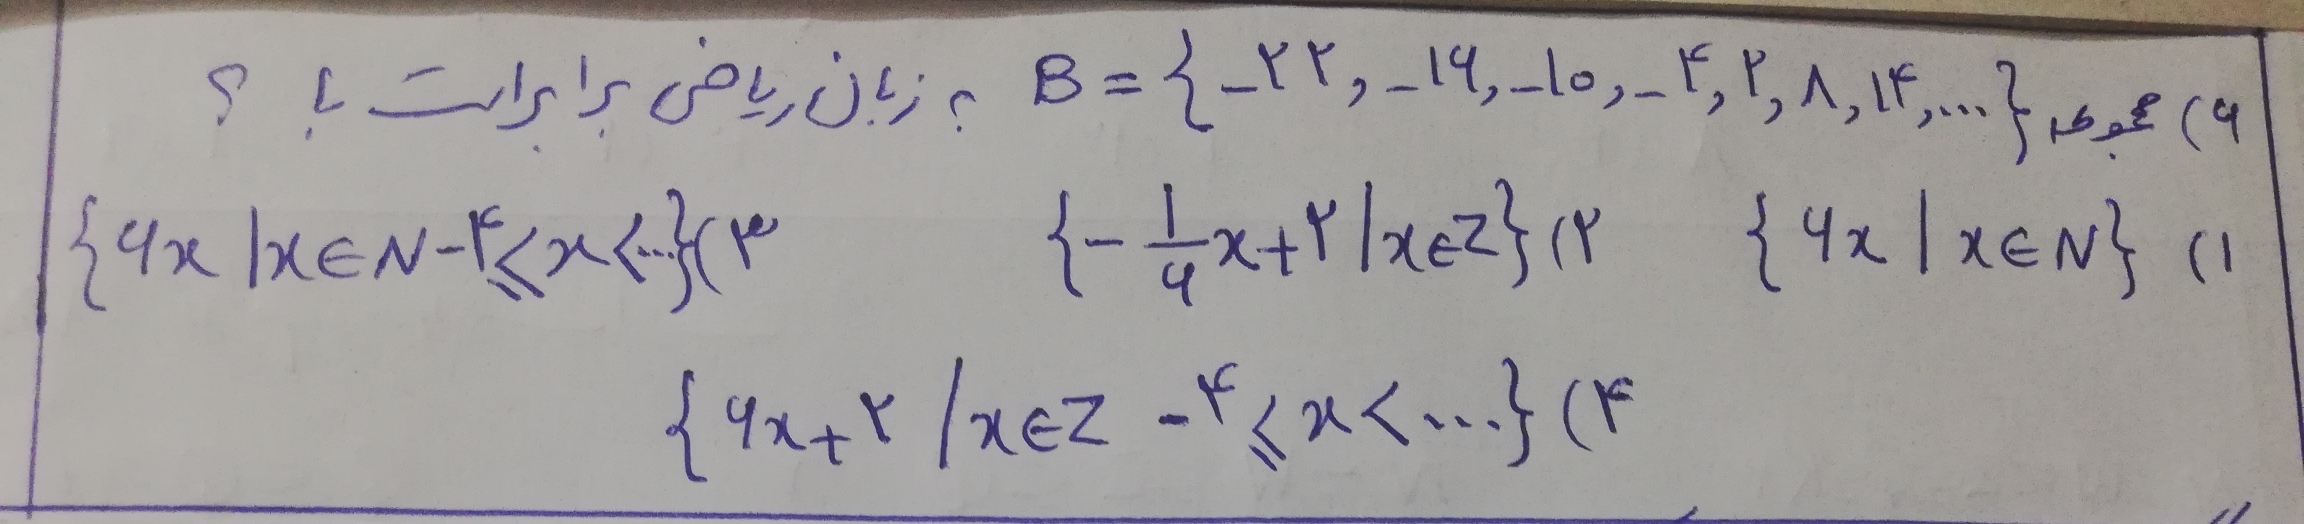 ۶) مجموعه B = {-۲۲, -۱۶, -۱۰, -۴, ۲, ۸, ۱۴, ...} به زبان ریاضی برابر است با ؟
۱) {۶x | x∈N} ۲) {-\frac{۱}{۶}x+۲ | x∈Z} ۳) {۶x | x∈N -۴≤x<...}
۴) {۶x+۲ | x∈Z -۴≤x<...}